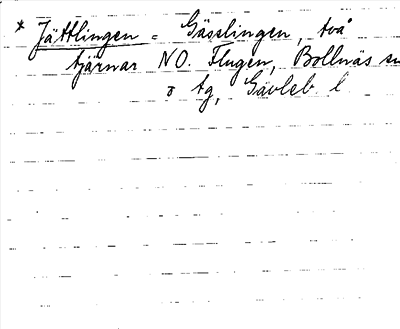 * Jättlingen = Gässlingen, två
tjärnar NO. Flugen, Bollnäs sn
o tg, Gävleb. l.